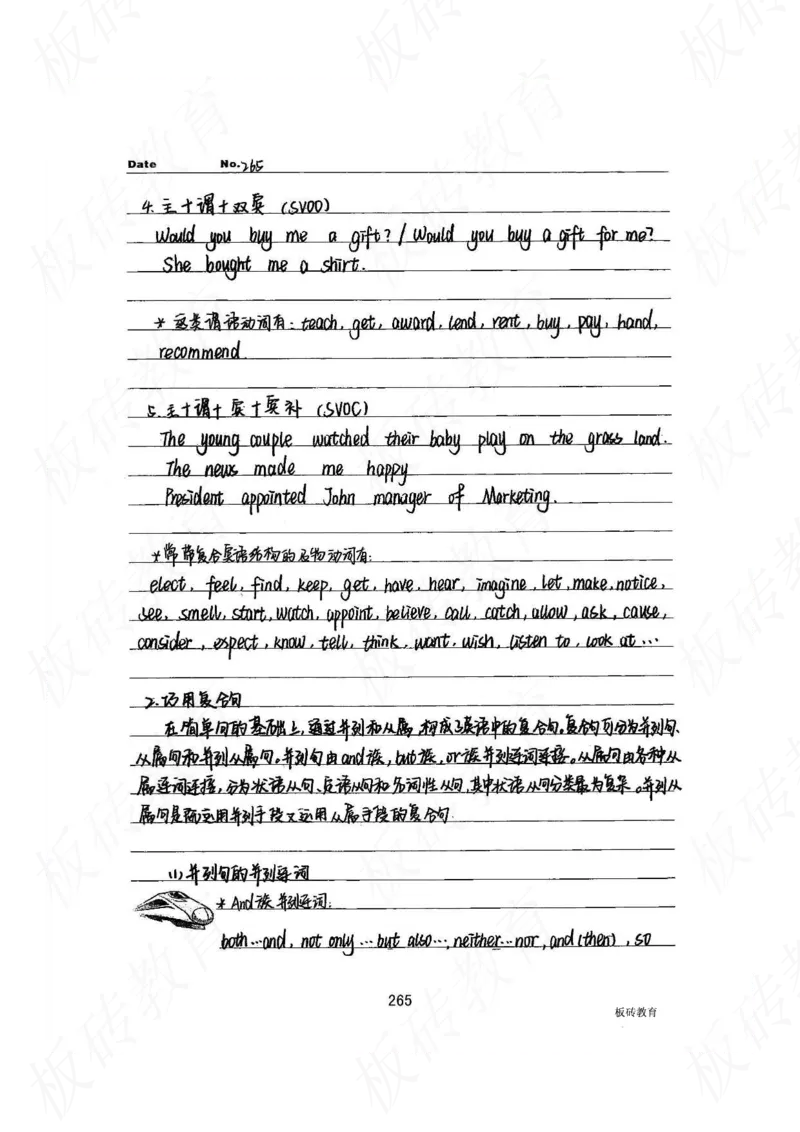 Date No.265
4. 主+谓+双宾 (SVOO)
Would you buy me a gift? / Would you buy a gift for me?
She bought me a shirt.
* 这类谓语动词有: teach, get, award, lend, rent, buy, pay, hand,
recommend.
5. 主+谓+宾+宾补 (SVOC)
The young couple watched their baby play on the grass land.
The news made me happy
President appointed John manager of Marketing.
*常带复合宾语结构的及物动词有:
elect, feel, find, keep, get, have, hear, imagine, let, make, notice,
see, smell, start, watch, appoint, believe, call, catch, allow, ask, cause,
consider, expect, know, tell, think, want, wish, listen to, look at …
2.巧用复合句
在简单句的基础上,通过并列和从属,构成了英语中的复合句。复合句可分为并列句、
从属句和并列从属句。并列句由and族,but族,or族并列连词连接。从属句由各种从
属连词连接,分为状语从句、定语从句和名词性从句,其中状语从句分类最为复杂。并列从
属句是既运用并列手段又运用从属手段的复合句.
(1)并列句的并列连词
* And族并列连词:
both…and, not only…but also…, neither…nor, and (then), so
265
板砖教育